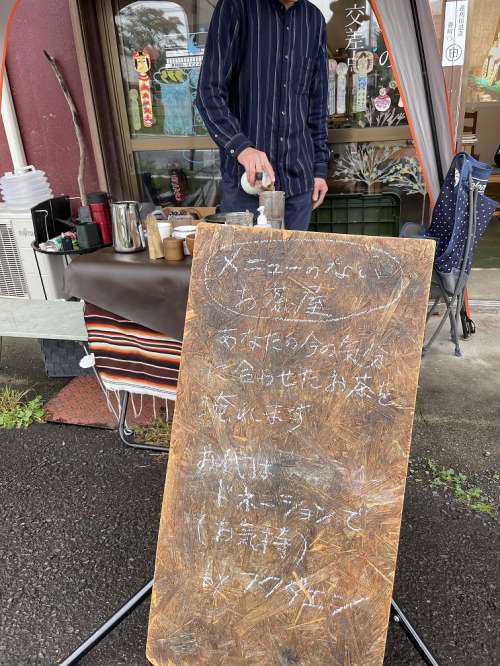 メニューのない
お茶屋
あなたの今の気分
に合わせたお茶を
淹れます
お代は
ドネーションで
(お気持)
by フクダエン
交差
の